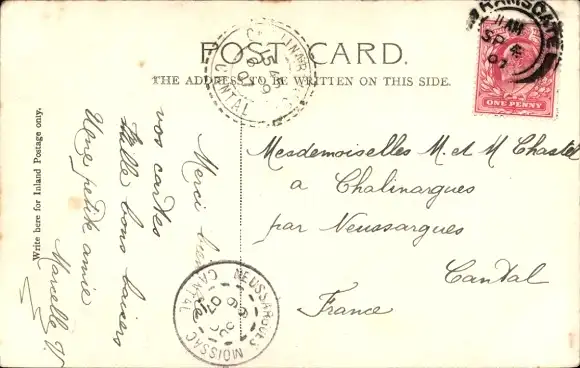 POST CARD.
THE ADDRESS TO BE WRITTEN ON THIS SIDE.
Write here for Inland Postage only.
RAMSGATE
SP 4
07
ONE PENNY
CANTAL
Merci
vos cartes
Mille bons baisers
Une petite amie
Marcelle V.
Mesdemoiselles M. et M Chastel
a Chalinargues
par Neussargues
Cantal
France
NEUSSARGUES
MOISSAC
CANTAL